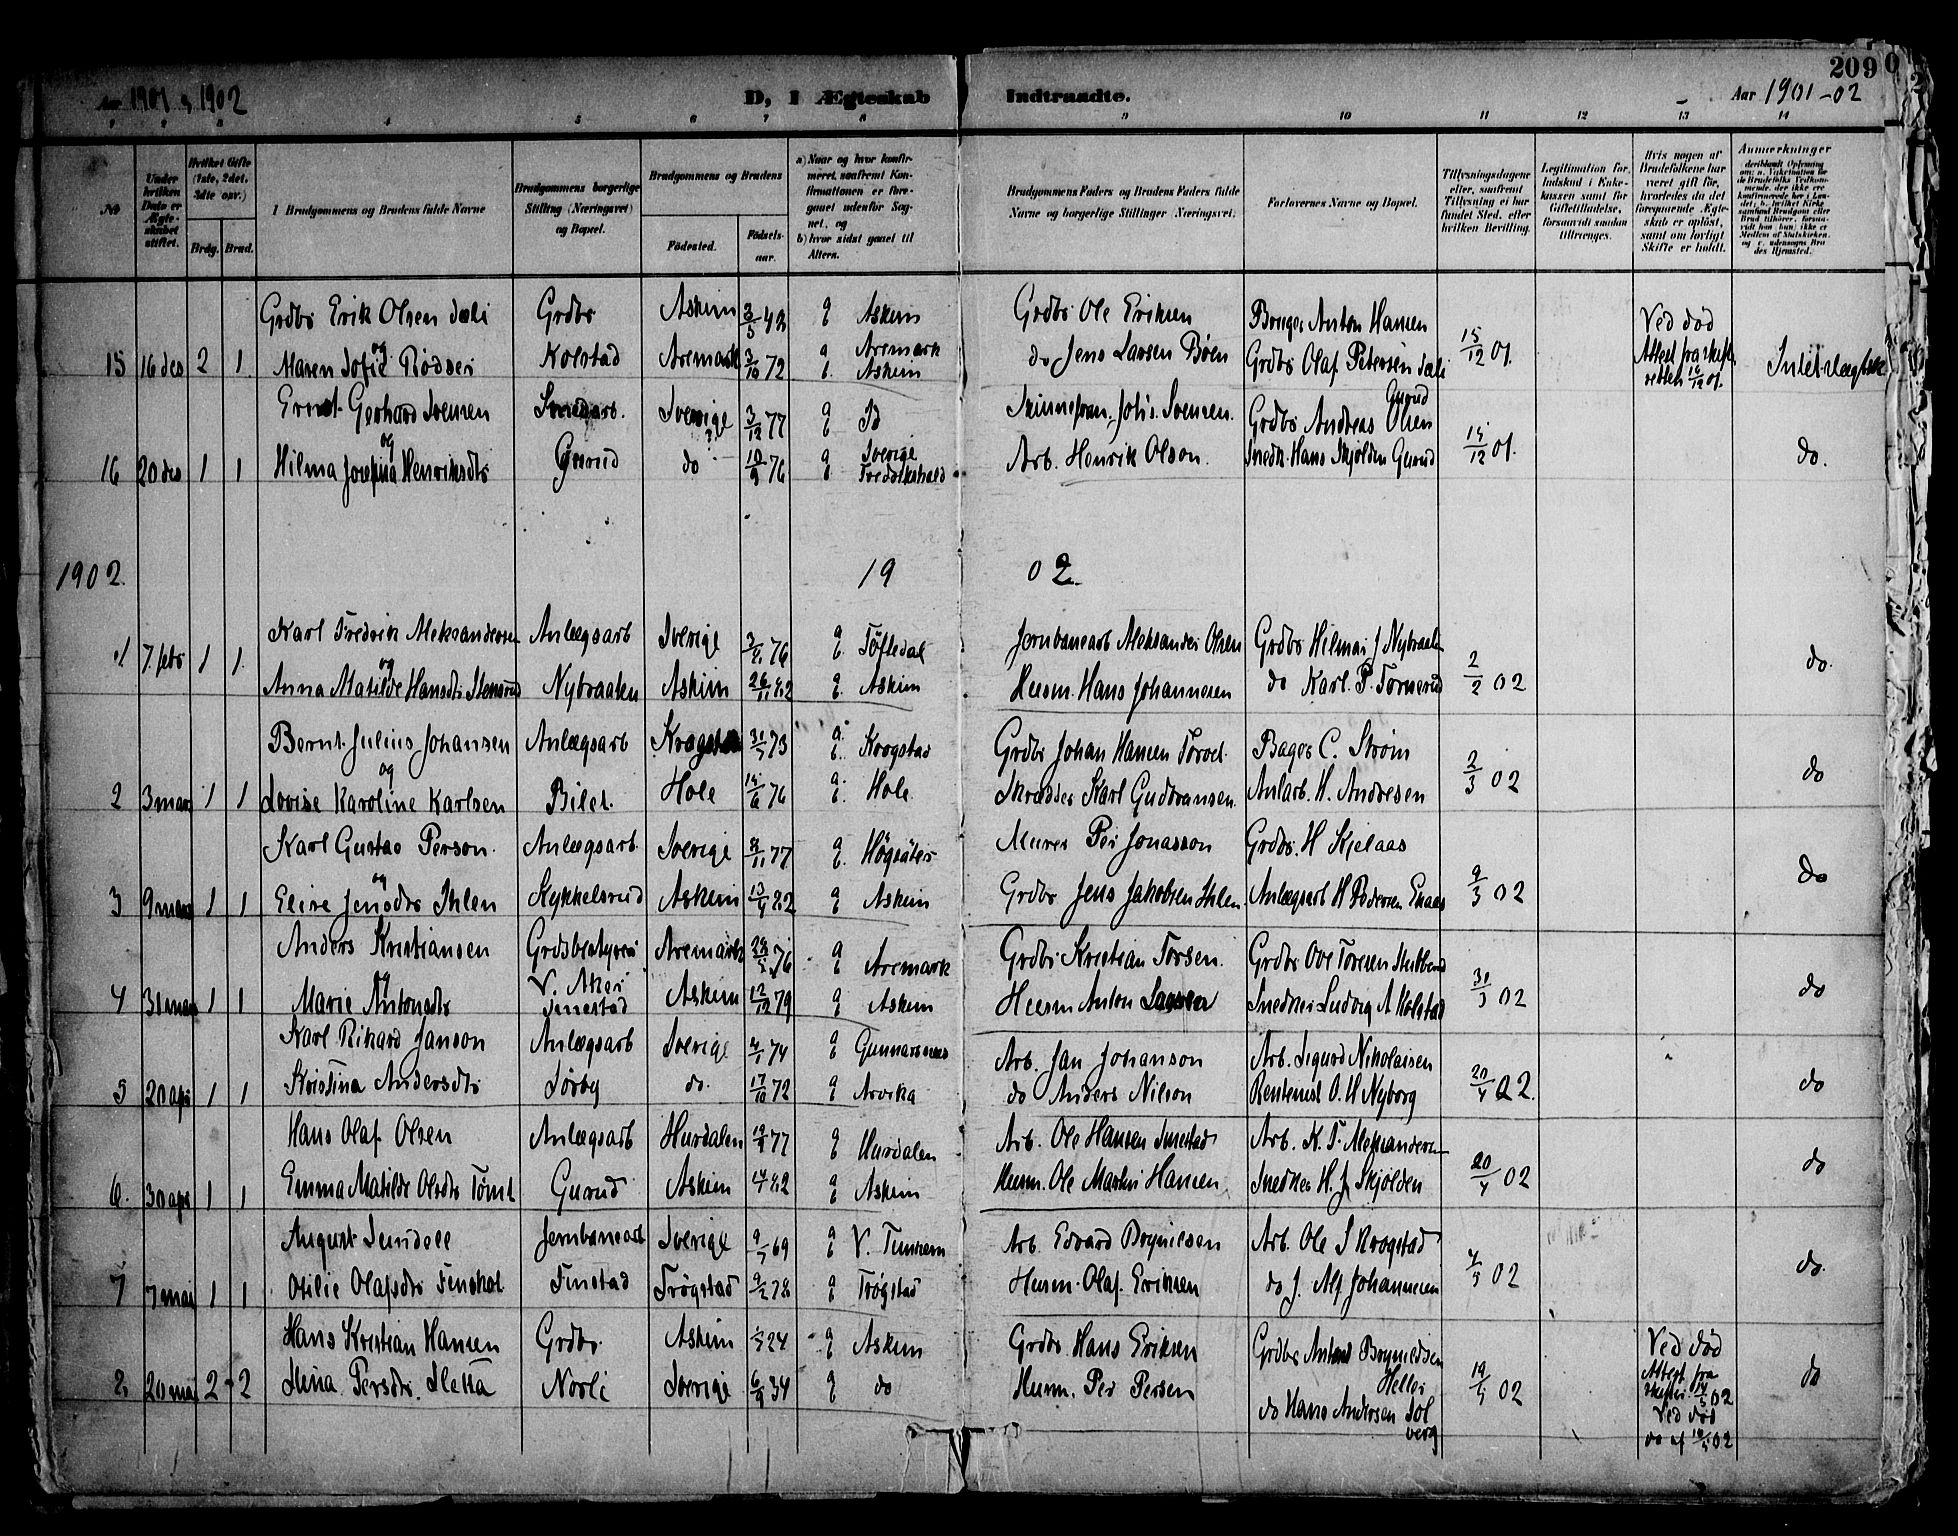 209
Aar 1901 & 1902
D, I Ægteskab Indtraadte.
Aar 1901-02
1 2 3 4 5 6 7 8 9 10 11 12 13 14
No
Under hvilken Dato er Ægteskabet stiftet.
Hvilket Gifte (1ste, 2det, 3die osv.)
Brdg. Brud.
I Brudgommens og Brudens fulde Navne
Brudgommens borgerlige Stilling (Næringsvei) og Bopæl.
Brudgommens og Brudens
Fødested. Fødselsaar.
a) Naar og hvor konfirmeret, samt om Konfirmationen er foregaaet udenfor Sognet, og
b) hvor sidst gaaet til Alters.
Brudgommens Faders og Brudens Faders fulde Navne og borgerlige Stillinger (Næringsvei).
Forlovernes Navne og Bopæl.
Tillysningsdagene eller, saafremt Tillysning ei har fundet Sted, efter hvilken Bevilling.
Legitimation for Indskud i Enkekassen samt for Giftetilladelse, forsaavidt saadan tiltrænges.
Hvis nogen af Brudefolkene har været gift før, hvorledes da det foregaaende Ægteskab er opløst, samt om lovligt Skifte er holdt.
Anmærkninger
Grdbr Erik Olsen Dæli Grdbr Askim 3/5 42 a Askim Grdbr Ole Eriksen Borger Anton Hansen Ved død
15 16 des 2 1 og Maren Sofie Rødsei Kolstad Aremark 3/10 72 a Aremark b Askim do Jens Larsen Bøen Grdbr Olaf Petersen Dæli 15/12 01. Attest fra skifteretten 16/12 01. Intet slægtsk
Ernst Gerhard Svensen Smedarb. Sverige 3/12 77 Skinnefran. Johs. Svensen. Grdbr Andreas Olsen Gurud
16 20 des 1 1 og Hilma Josefina Henriksdtr Gurud do 10/9 76 a Sverige b Fredrikshald Arb. Henrik Olson. Snedk. Hans Skjolden Gurud 15/12 01. do.
1902. 19 02
Karl Fredrik Aleksandersen Anlægsarb Sverige 3/2 76 Töftedal Jernbanearb Aleksander Olsen Grdbr Hilmar J Nybraaten
1 7. febr 1 1. og Anna Matilde Hansdtr Stensrud Nybraaten Askim 26/11 82 Askim Husm. Hans Johannesen do Karl. P. Tornerud 2/2 02 do.
Bernt Julius Johansen Anlægsarb Krogstad 31/7 73 Krogstad Grdbr Johan Hansen Torvet. Bager C. Strøm
2 3 mars 1 1 og Lovise Karoline Karlsen Bilet. Hole 15/6 76 Hole Skrædder Karl Gudbransen. Anlarb. H. Andresen 2/3 02 do
Karl Gustav Person. Anlægsarb. Sverige 8/11 77 Högsäter Murer Per Jonasson Grdbr. H Skjelaas
3 9 mars 1 1 og Elise Jensdtr Ihlen Kykkelsrud Askim 13/9 82 Askim Grdbr Jens Jakobsen Ihlen Anlægsarb H Pedersen Enaas 9/3 02 do
Anders Kristiansen Grdsbestyrer Aremark 28/5 76 Aremark Grdbr Kristian Torsen. Grdbr Ove Toresen Stubberud
4 31 mars 1 1 og Marie Antonsdtr V. Aker Finestad Askim 12/12 79 Askim Husm Anton Larsen Snedker Ludvig A Kolstad 31/3 02 do
Karl Rikard Janson Anlægsarb Sverige 4/1 74 Gunnarsnes Arb. Jan Johanson Arb. Sigurd Nikolaisen
5 20 apr 1 1 Kristina Andersdtr Sørby do. 17/10 72 Arvika do Anders Nilson Rentenist O. H Nyborg 20/4 02. do
Hans Olaf Olsen Anlægsarb Hurdalen 19/4 77 Hurdalen Arb. Ole Hansen Smestad Arb. K. F. Aleksandersen
6. 30 apr 1 1 Emma Matilde Olsdtr Tømt Gurud Askim 82 Askim Husm. Ole Martin Hansen Snedker H. J. Skjolden 20/4 02 do
August Sundell Jernbanearb Sverige 9/7 69 V. Tunhem Arb. Edvard Brynilsen Arb. Ole S Krogstad
7 7 mai 1 1 Otilie Olafsdtr Finshol Finstad Trøgstad 9/2 78 Trøgstad Husm. Olaf Eriksen do J. Alf Johannesen 4/5 02 do.
Hans Kristian Hansen Grdbr. Askim 24 Askim Grdbr Hans Eriksen Grdbr Anton Brynildsen Heller Ved død
8. 20 mai 2 2 Stina Persdtr. Sletta Norli Sverige 6/9 34 do Husm. Per Persen do Hans Andersen Solberg 19/5 02 Attest fra skifter. 14/5 02 Ved død do af 14/5 02 do